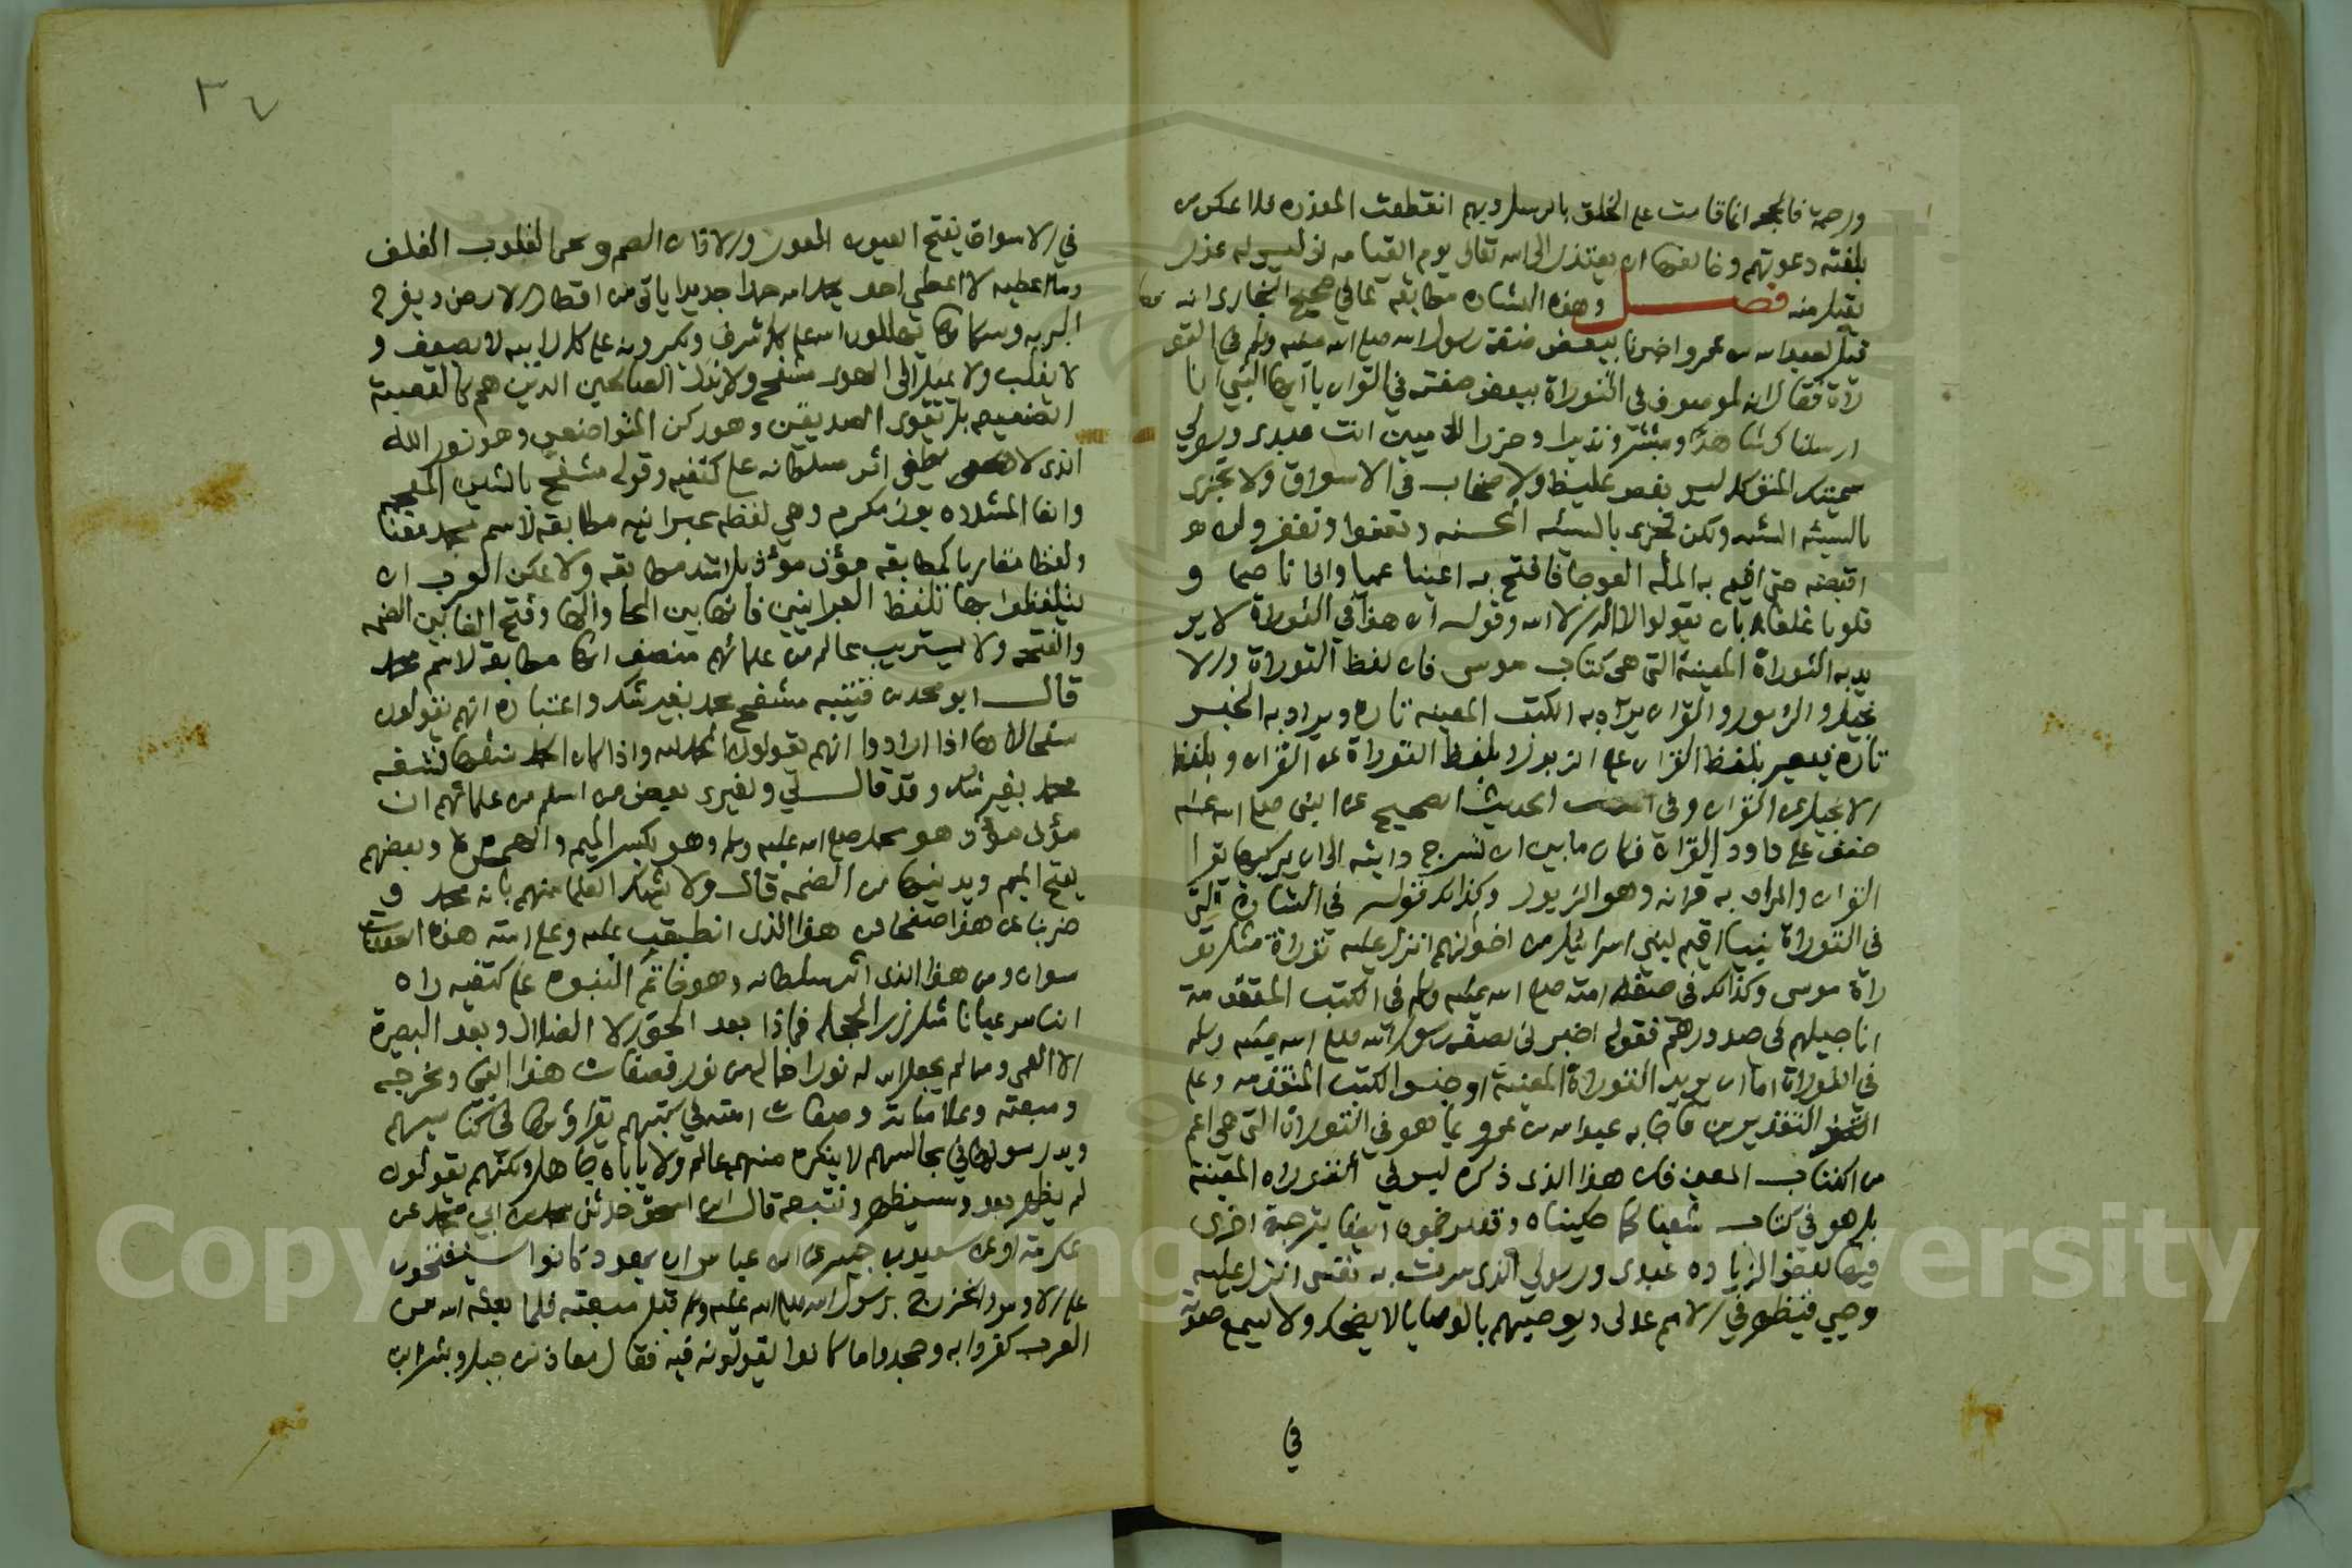 ورحمة فالحجه انما قامت على الخلق بالرسل وبهم انقطعت المعذره فلا يمكن من
بلغته دعوتهم وخالفها ان يعتذر الى الله تعالى يوم القيامه اذ ليس له عذر
يقبل منه فصل وهذه البشاره مطابقه لما في صحيح البخاري انه
قيل لعبد الله بن عمرو اخبرنا ببعض صفة رسول الله صلى الله عليه وسلم في التو
راة فقال انه لموصوف في التوراة ببعض صفته في القران يا ايها النبي انا
ارسلناك شاهدا ومبشرا ونذيرا وحرزا للاميين انت عبدى ورسولي
سميتك المتوكل ليس بفظ غليظ ولا صخاب في الاسواق ولا يجزى
بالسيئه السيئه ولكن يجزى بالسيئه الحسنه ويعفوا ويغفر ولن
اقبضه حتى اقيم به المله العوجا فافتح به اعينا عميا واذانا صما و
قلوبا غلفا بان يقولوا لا اله الا الله وقوله ان هذا في التوراة لا ير
يد به التوراة المعينة التى هي كتاب موسى فان لفظ التوراة والا
نجيل والزبور والقران يراد به الكتب المعينه تارة ويراد به الجنس
تارة فيعبر بلفظ القران عن الزبور وبلفظ التوراة عن القران وبلفظ
الانجيل عن القران وفي الحديث الصحيح عن النبي صلى الله عليه
خفف على داود القراة فكان ما بين ان تسرج دابته الى ان يركبها يقرا
القران والمراد به قرانه وهو الزبور وكذلك قوله في البشارة التى
في التوراة نبيا اقيم لبني اسرائيل من اخوانهم انزل عليه توراة مثل تو
راة موسى وكذلك في صفة امته صلى الله عليه وسلم في الكتب المتقدمة
اناجيلهم في صدورهم فقوله اخبرني بصفة رسول الله صلى الله عليه وسلم
في التوراة اما ان يريد التوراة المعينة او جنس الكتب المتقدمه وعلى
التقديرين فاجابه عبد الله بن عمرو بما هو في التوراة التى هي اعم
من الكتاب المعين فان هذا الذى ذكره ليس في التوراه المعينة
بل هو في كتاب شعيا كما حكيناه وقد ترجموه ايضا بترجمة اخرى
فيها بعض الزياده عبدى ورسولي الذى سرت به نفسى انزل عليه
وحيي فيظهر في الامم عدلي ويوصيهم بالوصايا لا يضحك ولا يسمع صوته
في
في الاسواق يفتح العيون العور والاذان الصم وعم القلوب الغلف
وما اعطيه لا اعطي احد يحمد الله حمدا جديدا ياتي من اقطار الارض ويفرح
البريه وسكانها يهللون الله على كل شرف ويكبرونه على كل رابيه لا يضعف و
لا يغلب ولا يميل الى الهوى مشفح ولا يذل الصالحين الذين هم كالقصبة
الضعيفه بل يقوى الصديقين وهو ركن المتواضعين وهو نور الله
الذى لا يطفى اثر سلطانه على كتفيه وقوله مشفح بالشين المعجمه
والفا المشدده بوزن مكرم وهي لفظه عبرانيه مطابقه لاسم محمد معنا
ولفظا مقاربا كمطابقة موذ موذ بل اشد مطابقه ولا يمكن العرب ان
يتلفظوا بها تلفظ العبرانيين فانها بين الحا والها وفتح الفا بين الضمه
والفتحه ولا يستريب عالم من علمائهم منصف انها مطابقه لاسم محمد
قال ابو محمد بن قتيبه مشفح محمد بغير شك واعتباره انهم يقولون
شفحا لاها اذا ارادوا انهم يقولون الحمد لله واذا كان الحمد شفحا فمشفح
محمد بغير شك وقد قال لي ولغيرى بعض من اسلم من علمائهم ان
موذ موذ هو محمد صلى الله عليه وسلم وهو بكسر الميم والهمزة وبعضهم
يفتح الميم ويدنيها من الضمه قال ولا يشك العلما منهم بانه محمد و
ضربنا عن هذا صفحا من هذا الذى انطبقت عليه وعلى امته هذه الصفات
سواه ومن هذا الذى اثر سلطانه وهو خاتم النبوه على كتفيه راه
الناس عيانا مثل زر الحجله فماذا بعد الحق الا الضلال وبعد البصيرة
الا العمى ومن لم يجعل الله له نورا فماله من نور فصفات هذا النبي ومخرجه
ومبعثه وعلاماته وصفات امته في كتبهم يقراونها في كنايسهم
ويدرسونها في مجالسهم لا ينكره منهم عالم ولا ياباه جاهل ولكنهم يقولون
لم يظهر بعد وسيظهر ونتبعه قال ابن اسحق حدثني محمد بن ابي محمد عن
عكرمة او عن سعيد بن جبير عن ابن عباس ان يهود كانوا يستفتحون
على الاوس والخزرج برسول الله صلى الله عليه وسلم قبل مبعثه فلما بعثه الله من
العرب كفروا به وجحدوا ما كانوا يقولونه فيه فقال معاذ بن جبل وبشر بن
Copyright © King Saud University